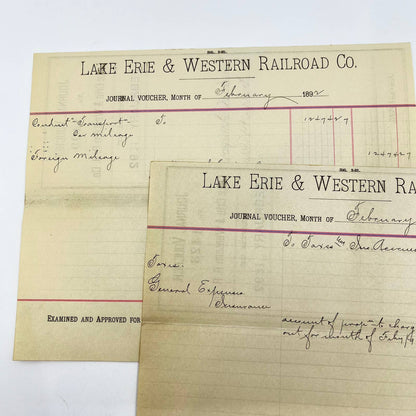 LAKE ERIE & WESTERN RAILROAD CO.
JOURNAL VOUCHER, MONTH OF February 1892
Conduct Transport To 1247427
Car mileage
Foreign Mileage 1247427
EXAMINED AND APPROVED FOR
LAKE ERIE & WESTERN RA
JOURNAL VOUCHER, MONTH OF February
To Taxes Ins.
Taxes.
General Expenses
Insurance
account of prop to charg
out for month of Feby